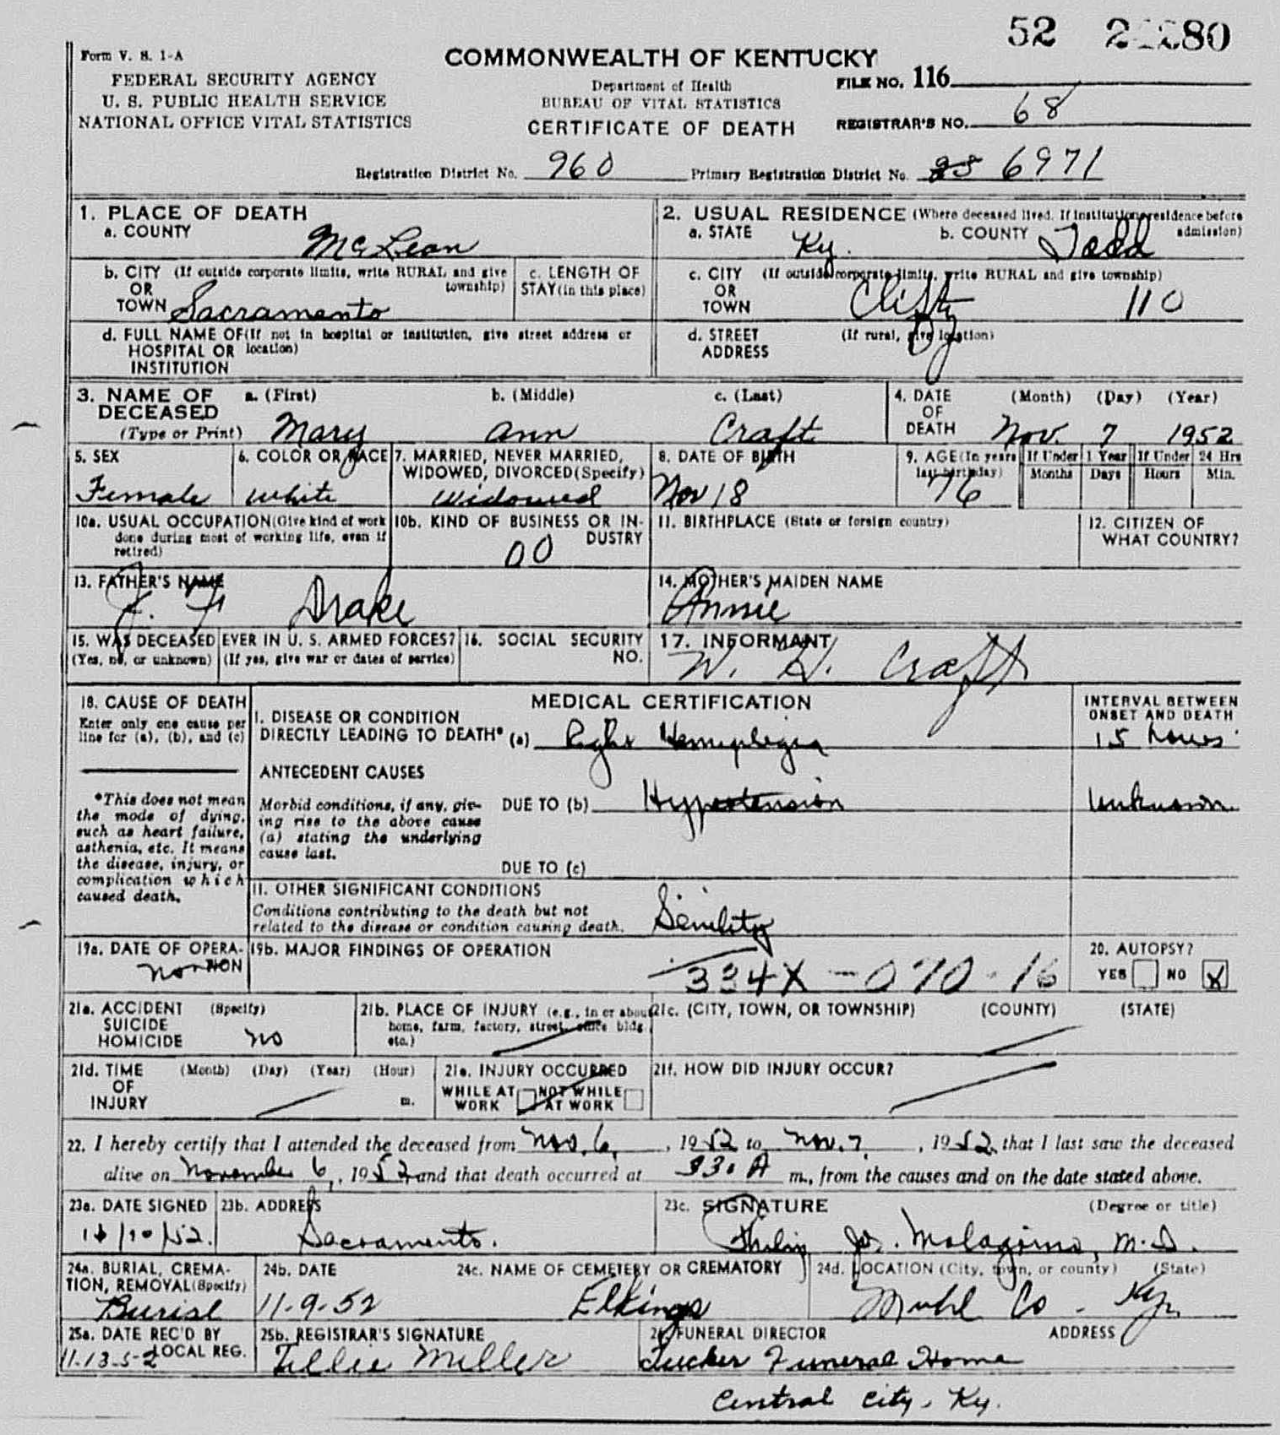 52 2 80
Form V. S. 1-A
COMMONWEALTH OF KENTUCKY
FEDERAL SECURITY AGENCY
U. S. PUBLIC HEALTH SERVICE
NATIONAL OFFICE VITAL STATISTICS
Department of Health
BUREAU OF VITAL STATISTICS
CERTIFICATE OF DEATH
FILE NO. 116
REGISTRAR'S NO. 68
Registration District No. 960 Primary Registration District No. 6971
1. PLACE OF DEATH
a. COUNTY McLean
2. USUAL RESIDENCE (Where deceased lived. If institution, residence before admission)
a. STATE Ky. b. COUNTY Todd
b. CITY (If outside corporate limits, write RURAL and give township)
OR
TOWN Sacramento
c. LENGTH OF
STAY (in this place)
c. CITY (If outside corporate limits, write RURAL and give township)
OR
TOWN Clifty 110
d. FULL NAME OF (If not in hospital or institution, give street address or
HOSPITAL OR location)
INSTITUTION
d. STREET (If rural, give location)
ADDRESS
3. NAME OF DECEASED
(Type or Print)
a. (First) b. (Middle) c. (Last)
Mary Ann Craft
4. DATE OF DEATH (Month) (Day) (Year)
Nov. 7 1952
5. SEX
Female
6. COLOR OR RACE
White
7. MARRIED, NEVER MARRIED,
WIDOWED, DIVORCED (Specify)
Widowed
8. DATE OF BIRTH
Nov 18
9. AGE (In years last birthday) 76
If Under 1 Year
Months Days
If Under 24 Hrs
Hours Min.
10a. USUAL OCCUPATION (Give kind of work
done during most of working life, even if
retired)
10b. KIND OF BUSINESS OR INDUSTRY
00
11. BIRTHPLACE (State or foreign country)
12. CITIZEN OF
WHAT COUNTRY?
13. FATHER'S NAME
J. F Drake
14. MOTHER'S MAIDEN NAME
Annie
15. WAS DECEASED EVER IN U. S. ARMED FORCES?
(Yes, no, or unknown) (If yes, give war or dates of service)
16. SOCIAL SECURITY
NO.
17. INFORMANT
W. H. Craft
18. CAUSE OF DEATH
Enter only one cause per
line for (a), (b), and (c)
*This does not mean
the mode of dying,
such as heart failure,
asthenia, etc. It means
the disease, injury, or
complication which
caused death.
MEDICAL CERTIFICATION
INTERVAL BETWEEN
ONSET AND DEATH
I. DISEASE OR CONDITION
DIRECTLY LEADING TO DEATH* (a) Right Hemiplegia 15 hours
ANTECEDENT CAUSES
Morbid conditions, if any, giving
rise to the above cause
(a) stating the underlying
cause last.
DUE TO (b) Hypertension unknown
DUE TO (c)
II. OTHER SIGNIFICANT CONDITIONS
Conditions contributing to the death but not
related to the disease or condition causing death.
Senility
19a. DATE OF OPERATION
none
19b. MAJOR FINDINGS OF OPERATION
334X - 070 - 16
20. AUTOPSY?
YES NO X
21a. ACCIDENT (Specify)
SUICIDE
HOMICIDE no
21b. PLACE OF INJURY (e.g., in or about
home, farm, factory, street, office bldg.
etc.)
21c. (CITY, TOWN, OR TOWNSHIP) (COUNTY) (STATE)
21d. TIME (Month) (Day) (Year) (Hour)
OF
INJURY m.
21e. INJURY OCCURRED
WHILE AT WORK NOT WHILE AT WORK
21f. HOW DID INJURY OCCUR?
22. I hereby certify that I attended the deceased from Nov. 6, 1952 to Nov. 7, 1952, that I last saw the deceased
alive on November 6, 1952 and that death occurred at 830 A m., from the causes and on the date stated above.
23a. DATE SIGNED
11/10/52.
23b. ADDRESS
Sacramento.
23c. SIGNATURE (Degree or title)
Philip Jos. M.D.
24a. BURIAL, CREMATION, REMOVAL (Specify)
Burial
24b. DATE
11-9-52
24c. NAME OF CEMETERY OR CREMATORY
Elkings
24d. LOCATION (City, town, or county) (State)
Muhl Co - Ky.
25a. DATE REC'D BY
LOCAL REG.
11-13-52
25b. REGISTRAR'S SIGNATURE
Tillie Miller
26. FUNERAL DIRECTOR ADDRESS
Tucker Funeral Home
Central City, Ky.